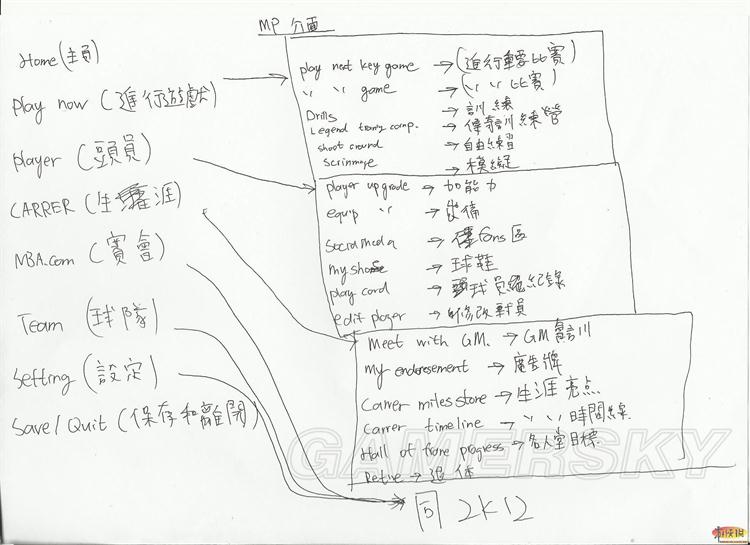 MP 介面
Home (主頁)
Play now (進行遊戲)
player (球員)
CARRER (生涯)
NBA.com
Team (球隊)
Setting (設定)
Save/Quit (保存和離開)
play next key game → (進行重要比賽)
〃 〃 game → (〃 〃 比賽)
Drills → 訓練
Legend traing camp. → 傳奇訓練營
shoot around → 自由練習
Scrimmage
player upgrade → 加能力
equip 〃 → 裝備
Social Media → fans 區
my shoe → 球鞋
play card → 球員紀錄
edit player → 修改球員
Meet with GM. → GM
My endorsement → 廣告牌
Carrer milesstore → 生涯亮点
Carrer timeline → 〃 〃 時間線
Hall of frame progress → 名人堂目標
Retire → 退休
同 2K12
GAMERSKY